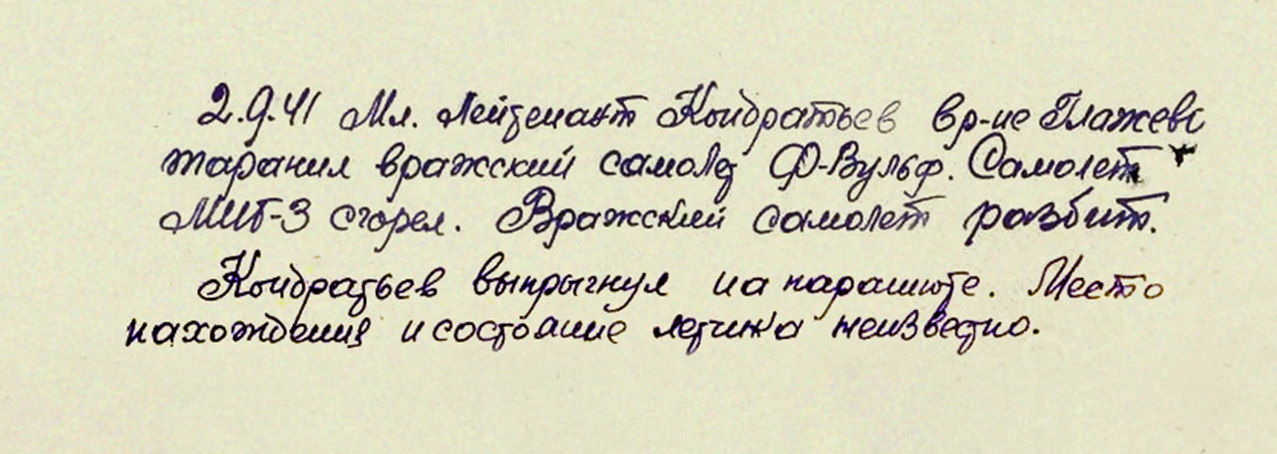 2.9.41 Мл. Лейтенант Кондратьев в р-не Глажево
таранил вражский самолет Ф-Вульф. Самолет
МИГ-3 сгорел. Вражский самолет разбит.
Кондратьев выпрыгнул на парашюте. Место
нахождения и состояние летчика неизвестно.